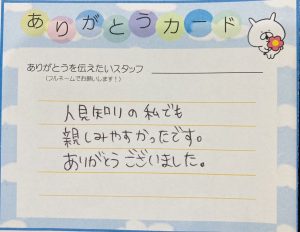 ありがとうカード
ありがとうを伝えたいスタッフ
(フルネームでお願いします！)
人見知りの私でも
親しみやすかったです。
ありがとうございました。